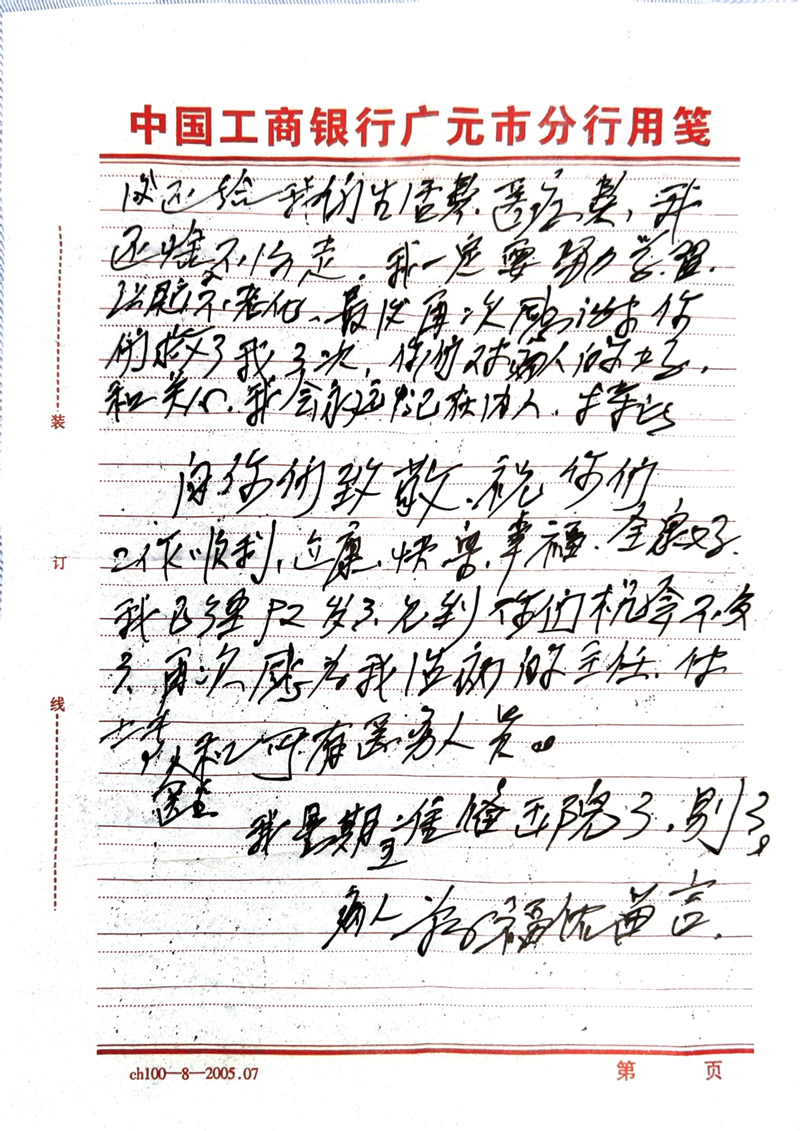 中国工商银行广元市分行用笺
还给我们生活费、医疗费,我
还啥不分走。我一定要努力学习,
不老化、最后再次感谢你
们救了我三次,你们对病人的
和关心,我会永远记在
向你们致敬、祝你们
工作顺利,健康、快乐、幸福、全家好
我已经92岁了、见到你们机会不多
了、再次感 为我治病的主任、
和所有医务人员。
我星期三准备出院了、别了。
病人 福佑留言.
装
订
线
ch100—8—2005.07
第 页